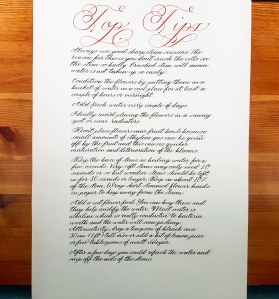 Top Tips
Always use good sharp stem scissors. The
reason for this is you don't crush the cells on
the stem so badly. Crushed stem will mean
water is not taken up so easily.
Condition the flowers by putting them in a
bucket of water in a cool place for at least a
couple of hours or overnight.
Add fresh water every couple of days.
Ideally avoid placing the flowers in a sunny
spot or near radiators.
Don't place flowers near fruit bowls because
small amounts of ethylene gas can be given
off by the fruit and this causes quicker
maturation and deterioration of the blooms.
Dip the base of stems in boiling water for a
few seconds. Very soft stems may only need
seconds or so but woodier stems should be left
in for 30 seconds or longer. Dip in about 10%
of the stems. Wrap short stemmed flower heads
in paper to keep away from the steam.
Add a cut flower food. You can buy these and
they help acidify the water. Most water is
alkaline which is really conducive to bacteria
worth and the water becoming
Alternatively drop a teaspoon of bleach in a
30cm (1ft) tall vase or add a bit of lemon juice
or five tablespoons of malt vinegar.
After a few days you could refresh the water and
snip off the ends of the stems.